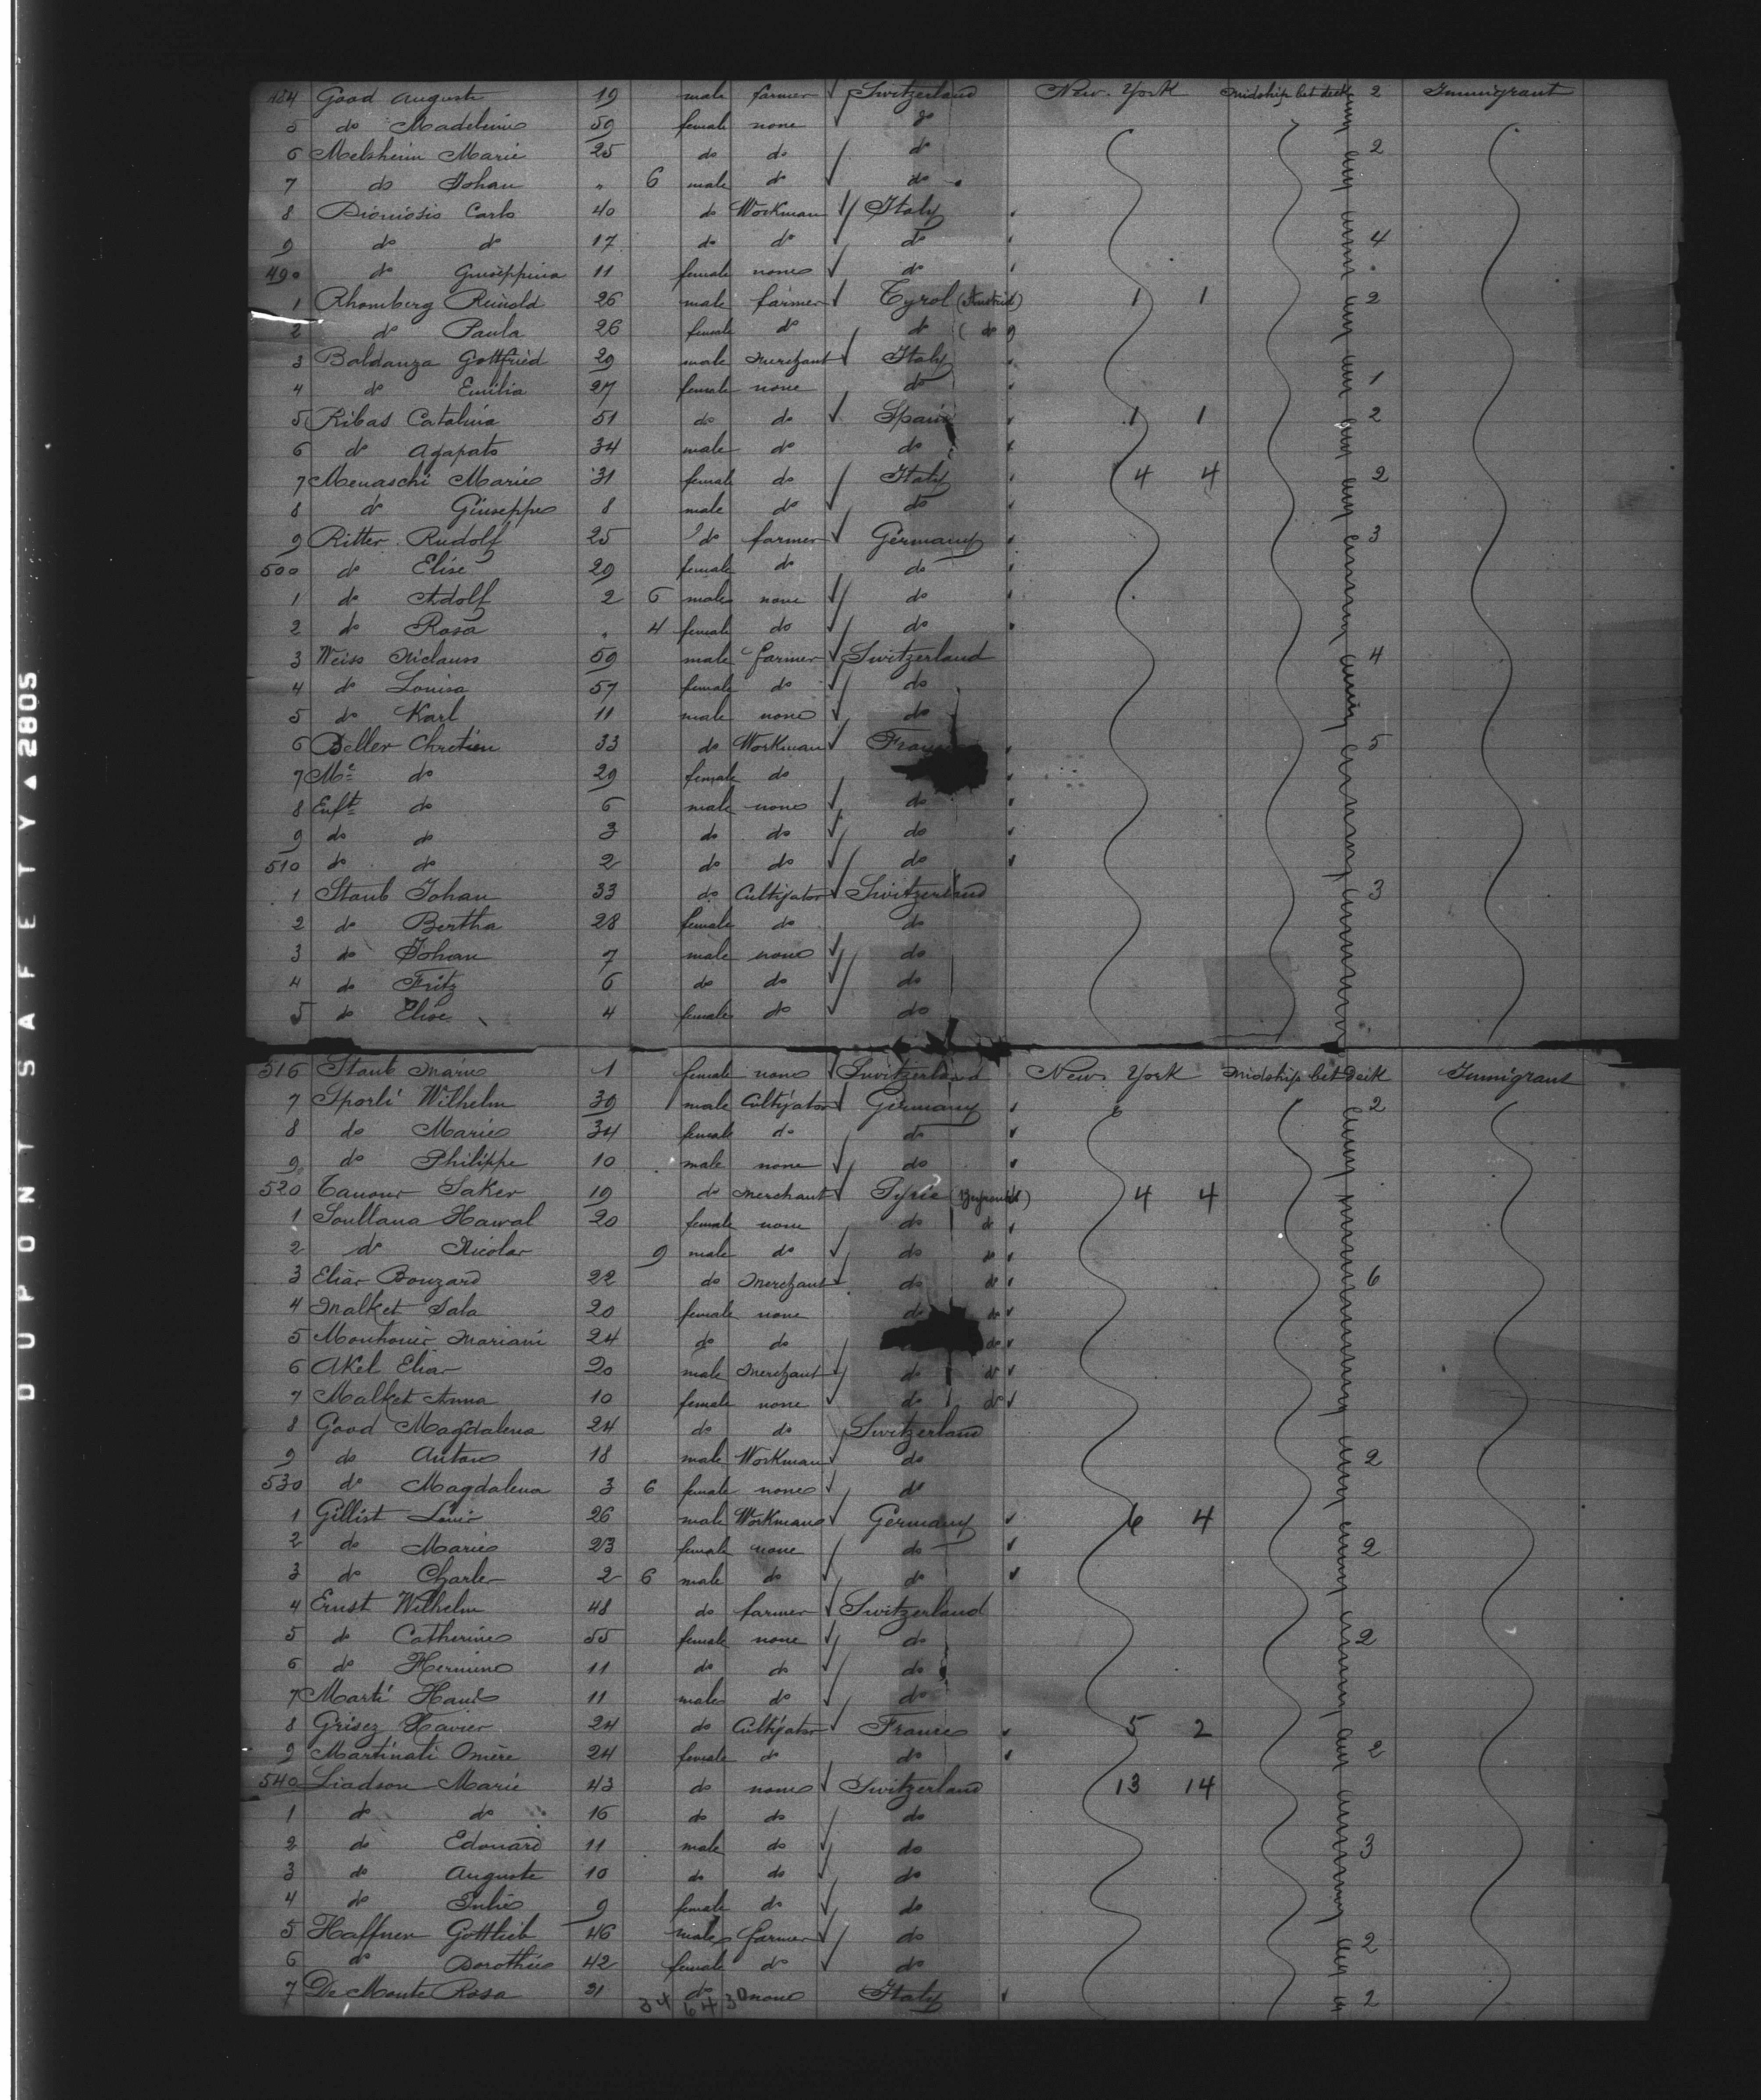 484 Good August 19 male farmer Switzerland New York midship bet deck 2 Immigrant
5 do Madeleine 59 female none do
6 Melsheim Marie 25 do do do 2
7 do Johan " 6 male do do
8 Dionisio Carlo 40 do Workman Italy
9 do do 17 do do do 4
490 do Giuseppina 11 female none do
1 Rhomberg Reinold 26 male farmer Tyrol (Austria) 1 1 2
2 do Paula 26 female do do (do)
3 Baldanza Gottfried 29 male merchant Italy
4 do Emilia 27 female none do 1
5 Ribas Catalina 51 do do Spain 1 1 2
6 do Agapato 34 male do do
7 Menaschi Marie 31 female do Italy 4 4 2
8 do Giuseppe 8 male do do
9 Ritter Rudolf 25 do farmer Germany 3
500 do Elise 29 female do do
1 do Adolf 2 6 male none do
2 do Rosa " 4 female do do
3 Weiss Niclauss 59 male farmer Switzerland 4
4 do Louisa 57 female do do
5 do Karl 11 male none do
6 Beller Chretien 33 do Workman France 5
7 Me do 29 female do
8 Enft do 6 male none do
9 do do 3 do do do
510 do do 2 do do do
1 Staub Johan 33 do Cultivator Switzerland 3
2 do Bertha 28 female do do
3 do Johan 7 male none do
4 do Fritz 6 do do do
5 do Elise 4 female do do
516 Staub Marie 1 female none Switzerland New York midship bet deck Immigrant
7 Sporli Wilhelm 39 male Cultivator Germany 2
8 do Marie 34 female do do
9 do Philippe 10 male none do
520 Tanour Saker 19 do merchant Syrie 4 4
1 Soultana Hawal 20 female none do do
2 do Nicolas 9 male do do do
3 Elias Bouzard 22 do merchant do do 6
4 Malket Sala 20 female none do do
5 Mouhouir Mariani 24 do do do
6 Akel Elias 20 male merchant do do
7 Malket Anna 10 female none do do
8 Good Magdalena 24 do do Switzerland
9 do Anton 18 male Workman do 2
530 do Magdalena 3 6 female none do
1 Gillist Louis 26 male Workman Germany 6 4
2 do Marie 23 female none do 2
3 do Charles 2 6 male do do
4 Ernst Wilhelm 48 do farmer Switzerland
5 do Catherine 55 female none do 2
6 do Hermine 11 do do do
7 Marti Hans 11 male do do
8 Grisez Xavier 24 do Cultivator France 5 2
9 Martinati Omère 24 female do do 2
540 Liadson Marie 43 do none Switzerland 13 14
1 do do 16 do do do
2 do Edouard 11 male do do 3
3 do Auguste 10 do do do
4 do Julie 9 female do do
5 Haffner Gottlieb 46 male farmer do 2
6 do Dorothée 42 female do do
7 De Monte Rosa 31 do none Italy 2
34 64 30
DUPONT SAFETY ▲ 2805